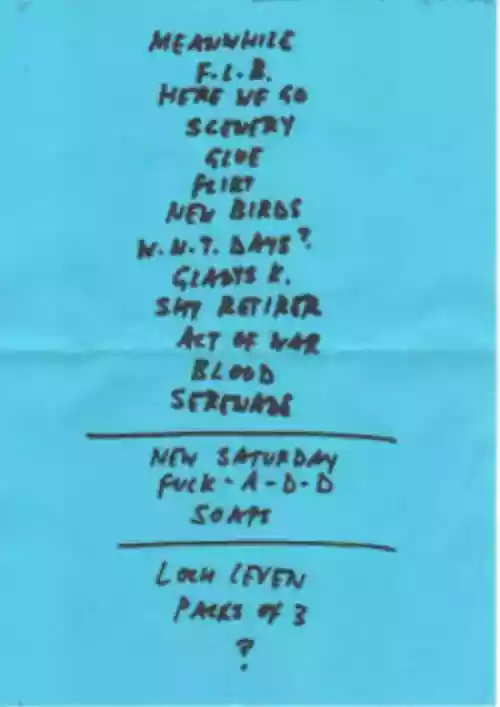 MEANWHILE
F.L.B.
HERE WE GO
SCENERY
GLUE
FLIRT
NEW BIRDS
W.N.T. DAYS?
GLADYS K.
SHY RETIRER
ACT OF WAR
BLOOD
SERENADE
NEW SATURDAY
FUCK-A-D-D
SOAPS
LOCH LEVEN
PACKS OF 3
?